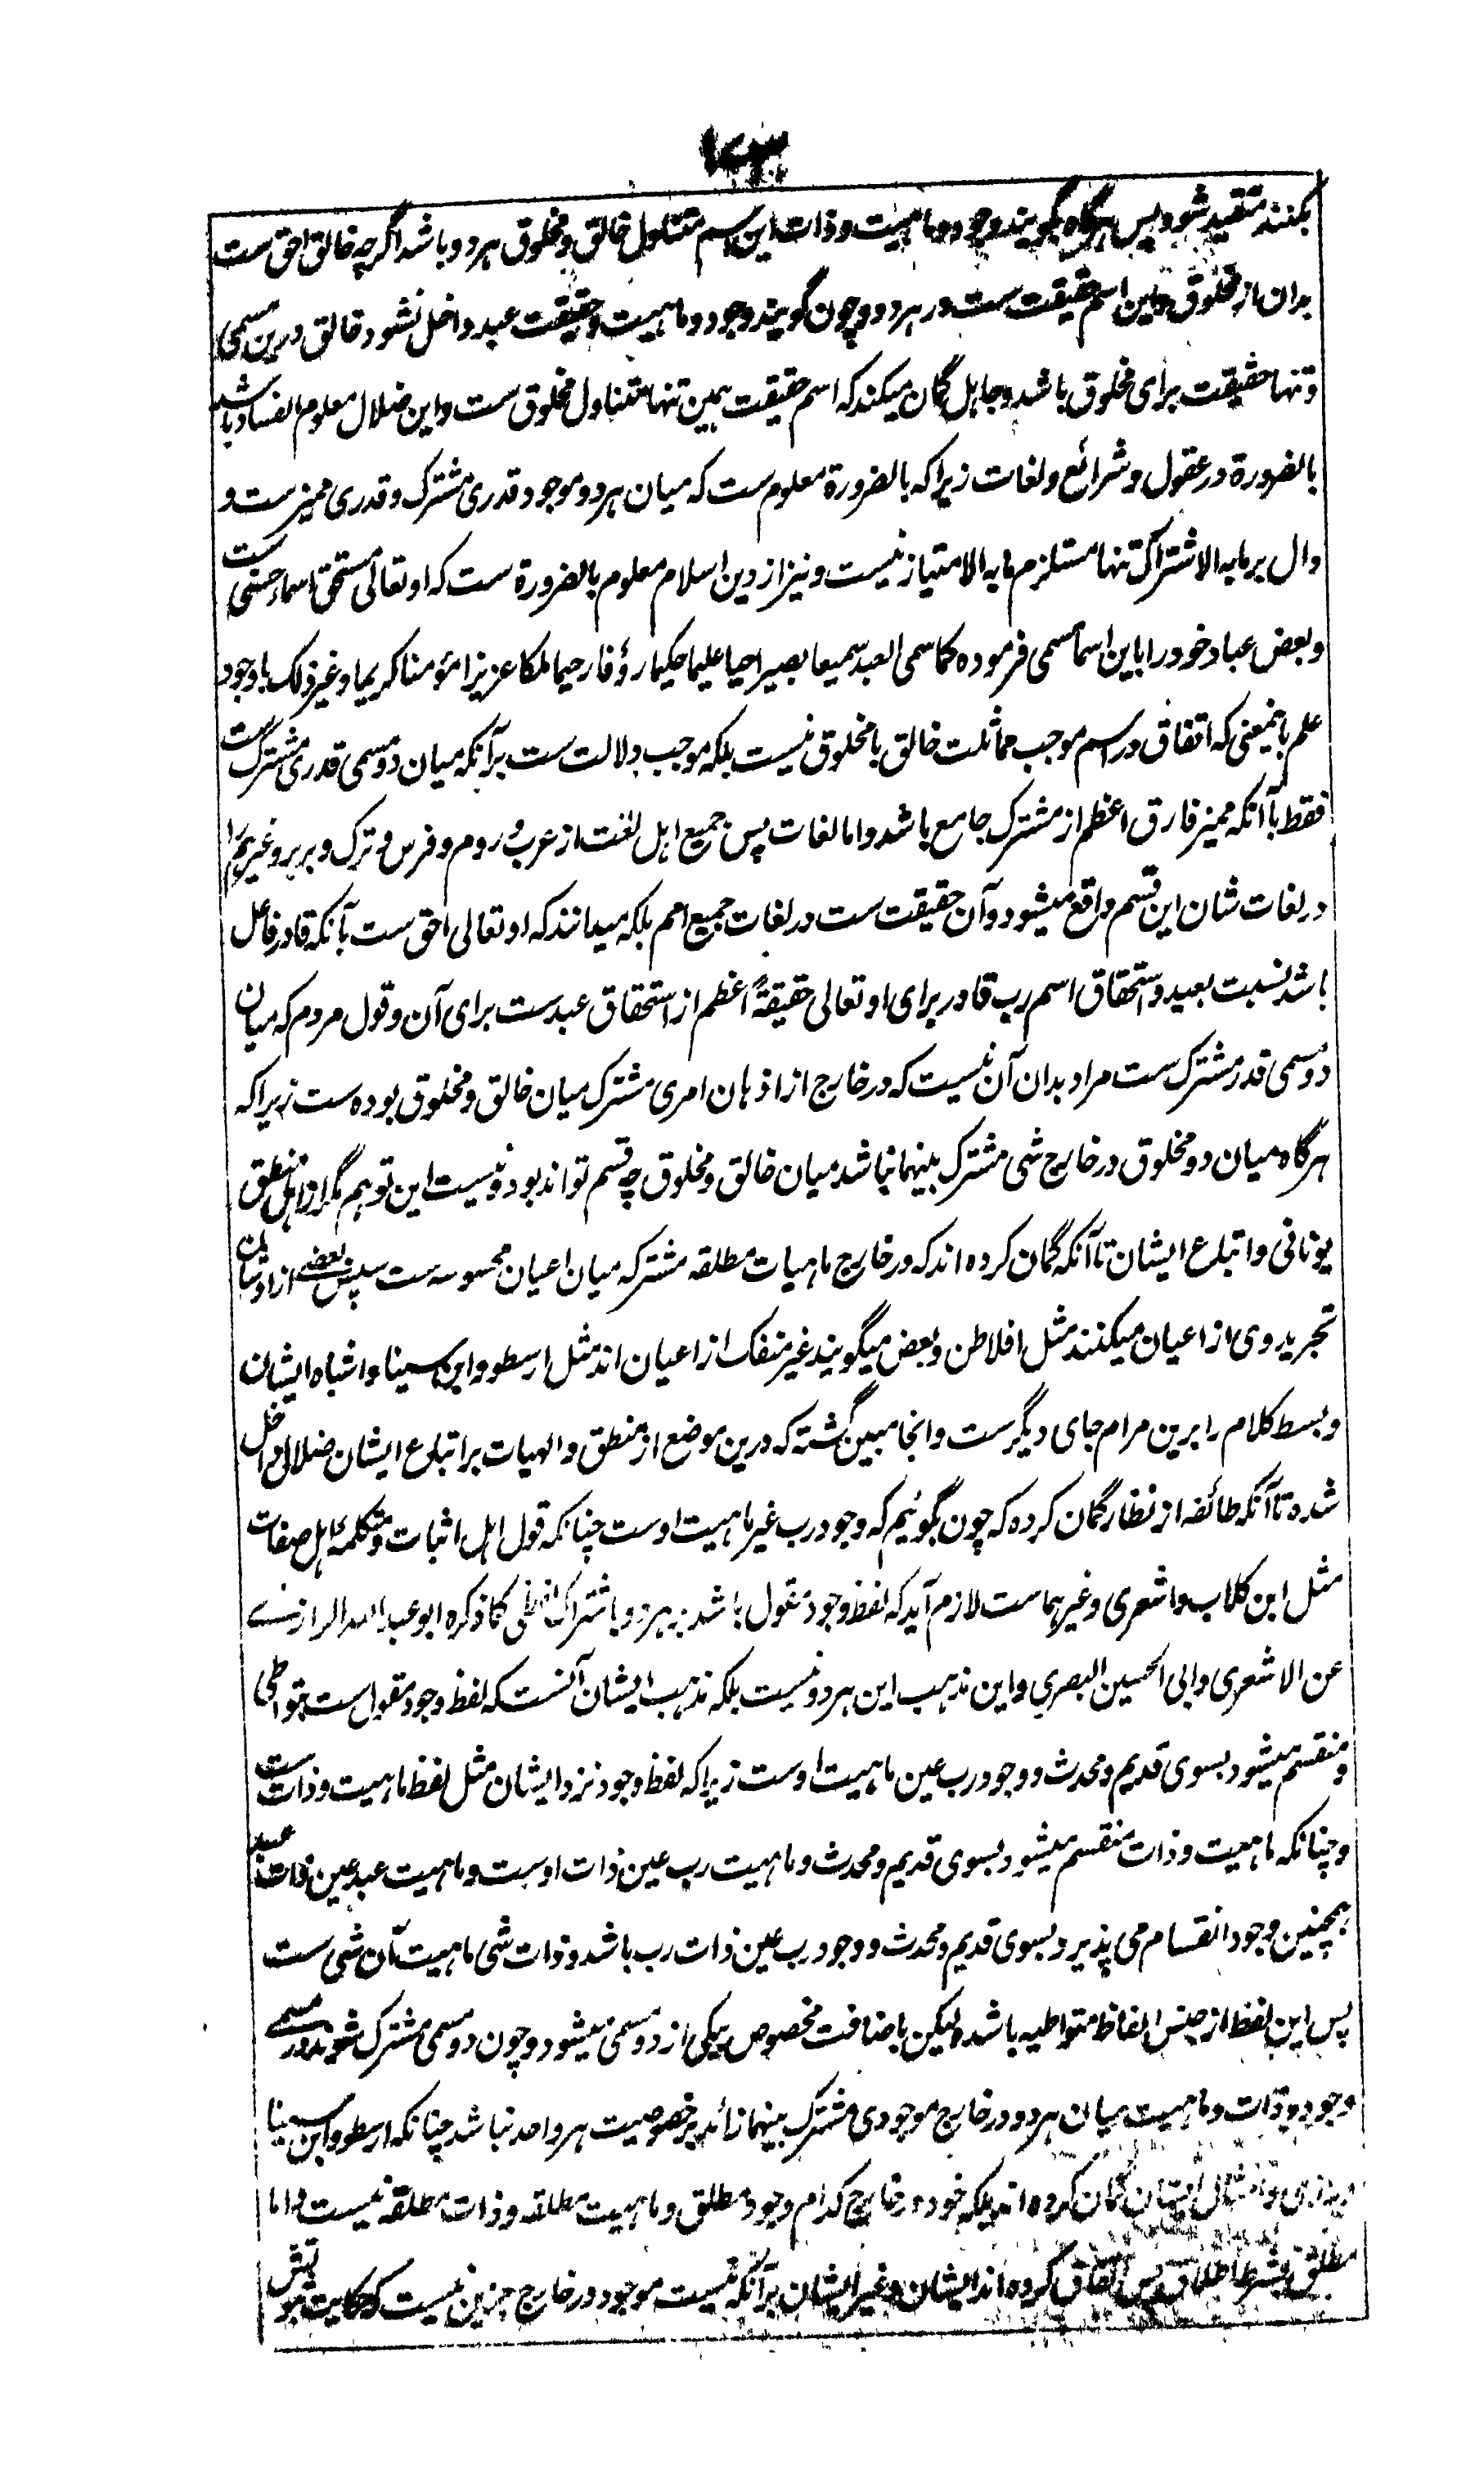 ۱۷۳
بکنند متقید شود پس هرگاه بگویند وجود و ماهیت و ذات این اسم متناول خالق و مخلوق هر دو باشد اگرچه خالق احق ست
بدان از مخلوق و این اسم حقیقت ست در هر دو و چون گویند وجود و ماهیت و حقیقت عبد داخل نشود خالق درین مسمی
و تنها حقیقت برای مخلوق باشد و جاهل گمان میکند که اسم حقیقت همین تنها متناول مخلوق ست و این ضلال معلوم الفساد باشد
بالضرورة در عقول و شرائع و لغات زیرا که بالضرورة معلوم ست که میان هر دو موجود قدری مشترک و قدری ممیز ست و
دال بر مابه الاشتراک تنها مستلزم مابه الامتیاز نیست و نیز از دین اسلام معلوم بالضرورة ست که او تعالی مستحق اسماء حسنی ست
و بعض عباد خود را باین اسما مسمی فرموده کما سمی العبد سمیعا بصیرا حیا علیما حکیما رؤفا رحیما ملکا عزیزا مؤمنا کریما و غیر ذلک با وجود
علم باینمعنی که اتفاق در اسم موجب مماثلت خالق با مخلوق نیست بلکه موجب دلالت ست برآنکه میان دو مسمی قدری مشترک ست
فقط باآنکه ممیز فارق اعظم از مشترک جامع باشد و اما لغات پس جمیع اهل لغت از عرب و روم و فرس و ترک و بربر و غیرهم را
در لغات شان این قسم واقع میشود و آن حقیقت ست در لغات جمیع امم بلکه میدانند که او تعالی احق ست بآنکه قادر فاعل
باشد نسبت بعبد و استحقاق اسم رب قادر برای او تعالی حقیقةً اعظم از استحقاق عبد ست برای آن و قول مردم که میان
دو مسمی قدر مشترک ست مراد بدان آن نیست که در خارج از اذهان امری مشترک میان خالق و مخلوق بوده ست زیرا که
هرگاه میان دو مخلوق در خارج شی مشترک بینهما نباشد میان خالق و مخلوق چه قسم تواند بود و نیست این توهم مگر از اهل منطق
یونانی و اتباع ایشان تاآنکه گمان کرده اند که در خارج ماهیات مطلقه مشترکه میان اعیان محسوسه ست سپس بعضی از اوشان
تجرید وی از اعیان میکنند مثل افلاطن و بعض میگویند غیر منفک از اعیان اند مثل ارسطو و ابن سینا و اشباه ایشان
و بسط کلام را برین مرام جای دیگر ست و آنجا مبین گشته که درین موضع از منطق و الهیات بر اتباع ایشان ضلالی داخل
شده تاآنکه طائفه از نظار گمان کرده که چون بگوئیم که وجود رب غیر ماهیت اوست چنانکه قول اهل اثبات و متکلمه اهل صفات
مثل ابن کلاب و اشعری و غیرهما ست لازم آید که لفظ وجود مقول باشد بر هر دو باشتراک لفظی کما ذکره ابو عبد الله الرازی
عن الاشعری و ابی الحسین البصری و این مذهب این هر دو نیست بلکه مذهب ایشان آنست که لفظ وجود مقول ست بتواطی
و منقسم میشود بسوی قدیم و محدث و وجود رب عین ماهیت اوست زیرا که لفظ وجود نزد ایشان مثل لفظ ماهیت و ذات ست
و چنانکه ماهیت و ذات منقسم میشود بسوی قدیم و محدث و ماهیت رب عین ذات اوست و ماهیت عبد عین ذات عبد
همچنین وجود انقسام می پذیرد بسوی قدیم و محدث و وجود رب عین ذات رب باشد و ذات شی ماهیت آن شی ست
پس این لفظ از جنس الفاظ متواطیه باشد و لیکن باضافت مخصوص بیکی از دو مسمی میشود و چون دو مسمی مشترک شوند در مسمی
وجود و ذات و ماهیت میان هر دو در خارج موجودی مشترک بینهما زائد بر خصوصیت هر واحد نباشد چنانکه ارسطو و ابن سینا
و رازی و امثال ایشان گمان کرده اند بلکه خود در خارج کدام وجود مطلق و ماهیت مطلقه و ذات مطلقه نیست و اما
مطلق بشرط اطلاق پس اتفاق کرده اند ایشان و غیر ایشان برآنکه نیست موجود در خارج جز این نیست که حکایت ثبوتش